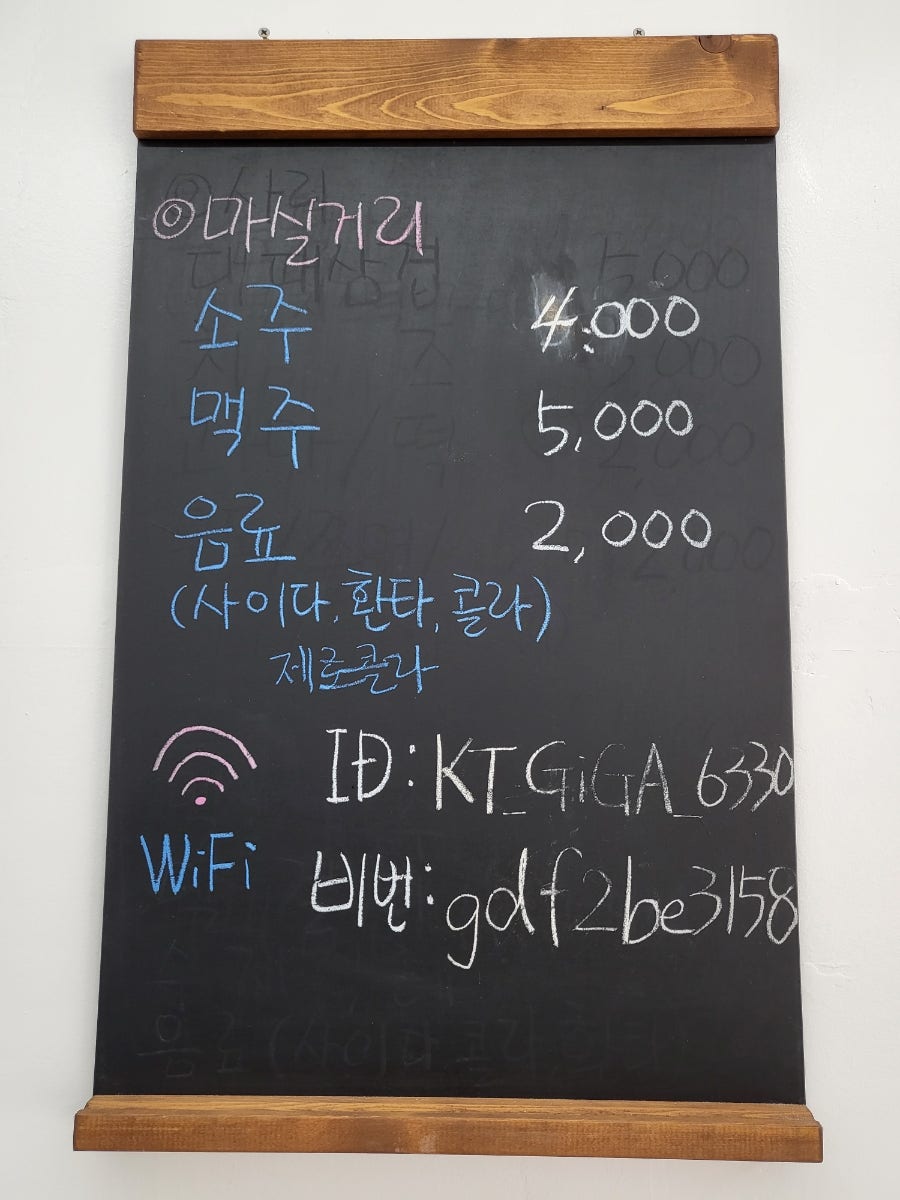 ◎마실거리
소주 4,000
맥주 5,000
음료 2,000
(사이다, 환타, 콜라)
제로콜라
ID: KT_GiGA_6330
WiFi 비번: gdf2be3158